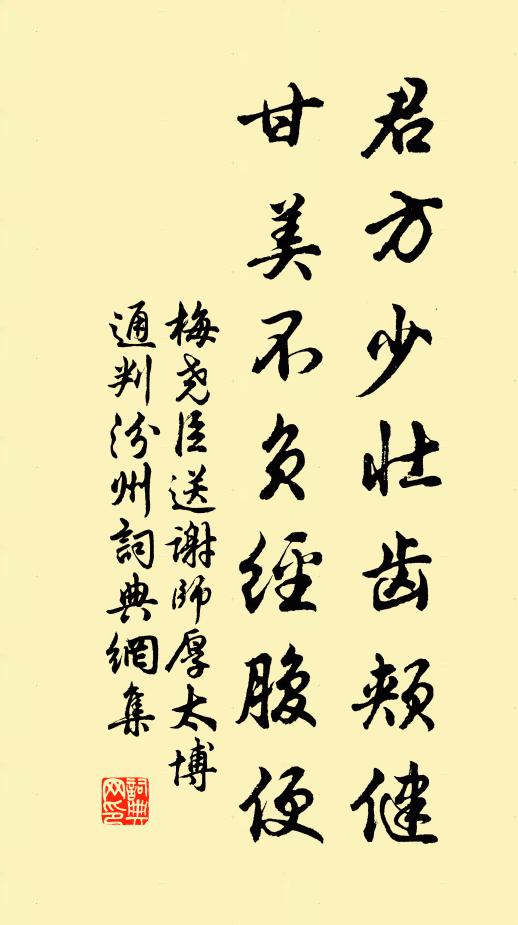 君方少壮齿颊健
甘美不负經腹便
梅尧臣送谢師厚太博
通判汾州詞典網集
詞典网印